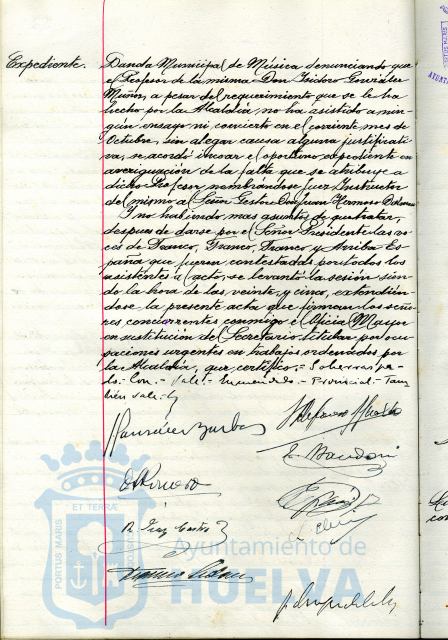 Expediente.
Banda Municipal de Música denunciando que
el Profesor de la misma Don Isidoro González
Muñoz, a pesar del requerimiento que se le ha
hecho por la Alcaldía, no ha asistido a nin-
gún ensayo ni concierto en el corriente mes de
Octubre, sin alegar causa alguna justificati-
va, se acordó incoar el oportuno expediente en
averiguación de la falta que se atribuye a
dicho Profesor nombrándose Juez Instructor
del mismo al Señor Gestor Don Juan Hermoso
Y no habiendo mas asuntos de que tratar,
despues de darse por el Señor Presidente las vo-
ces de Franco, Franco, Franco y Arriba Es-
paña que fueron contestadas por todos los
asistentes al acto, se levantó la sesión sien-
do la hora de las veinte y cinco, extendién-
dose la presente acta que firman los seño-
res concurrentes conmigo el Oficial Mayor
en sustitución del Secretario titular por ocu-
paciones urgentes en trabajos ordenados por
la Alcaldía, que certifico.- Sobrerraspa-
do.- Con.- Vale.- Enmendado.- Provincial.- Tam-
bién vale.-
ET TERRÆ
PORTUS MARIS
CUSTODIA
Ayuntamiento de
HUELVA